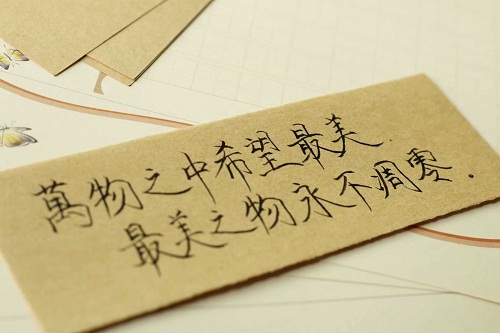 萬物之中希望最美
最美之物永不凋零.